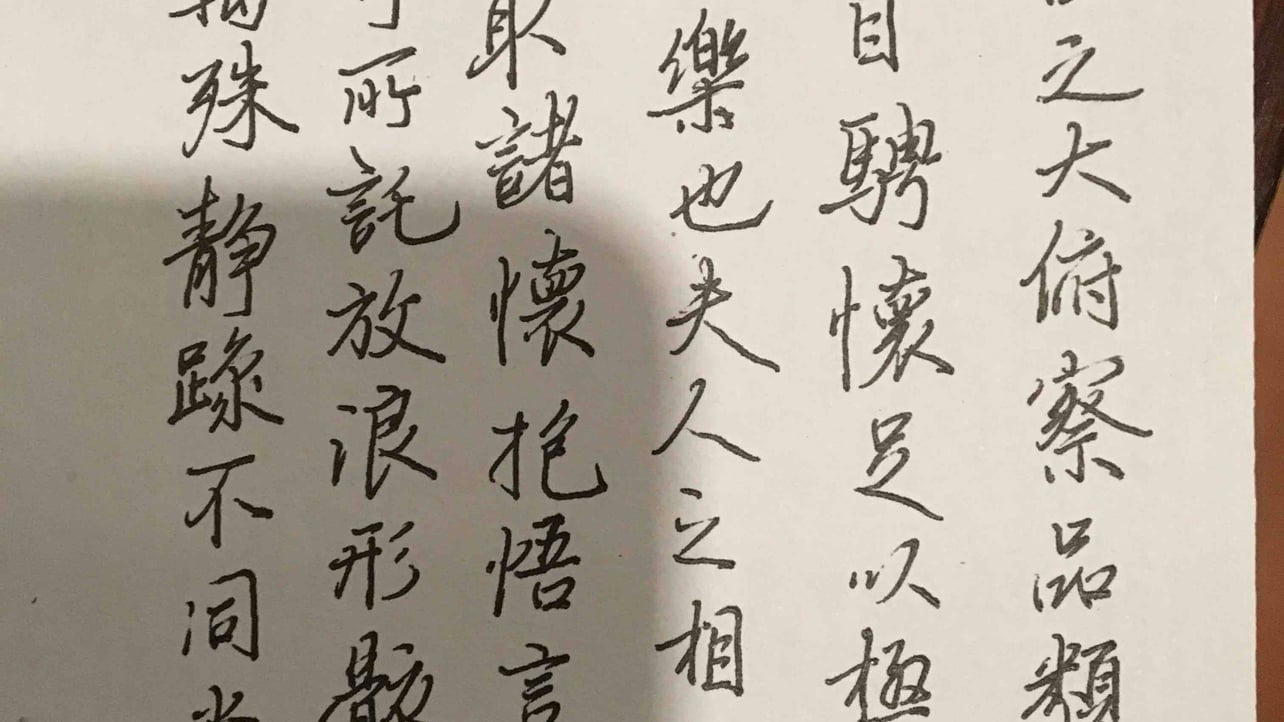 之大俯察品類
目騁懷足以極
樂也夫人之相
取諸懷抱悟言
所託放浪形骸
殊靜躁不同當